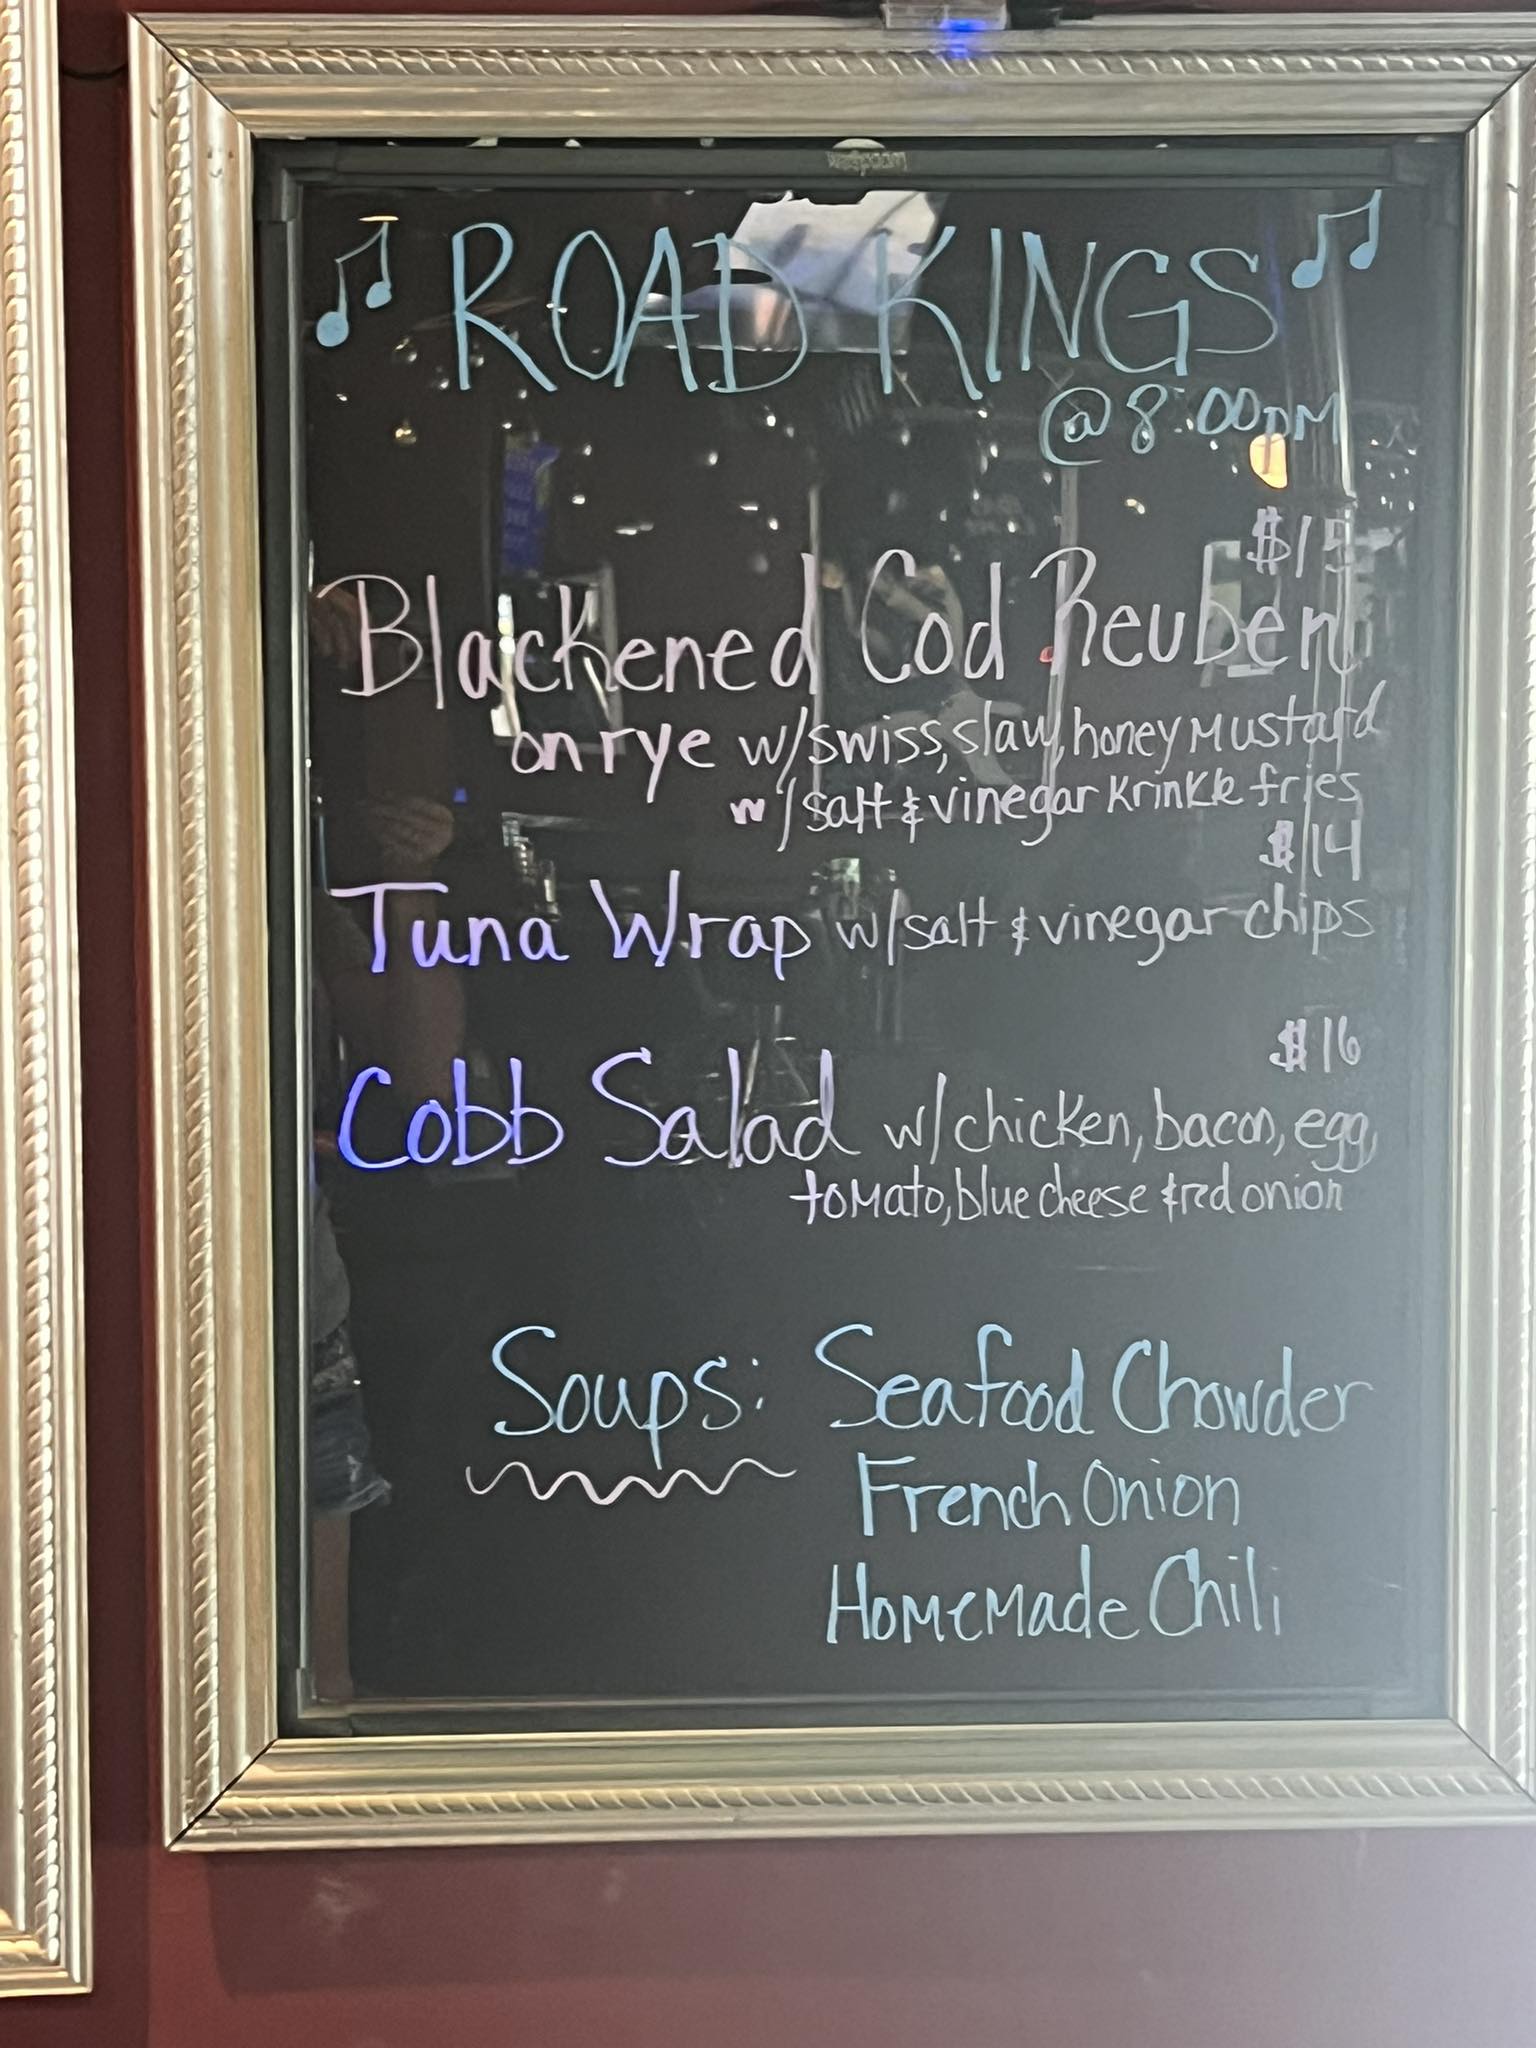 ROAD KINGS
@ 8:00pm
$15
Blackened Cod Reuben
on rye w/swiss, slaw, honey mustard
w/salt & vinegar Krinkle fries
$14
Tuna Wrap w/salt & vinegar chips
$16
Cobb Salad w/chicken, bacon, egg,
tomato, blue cheese & red onion
Soups: Seafood Chowder
French Onion
Homemade Chili